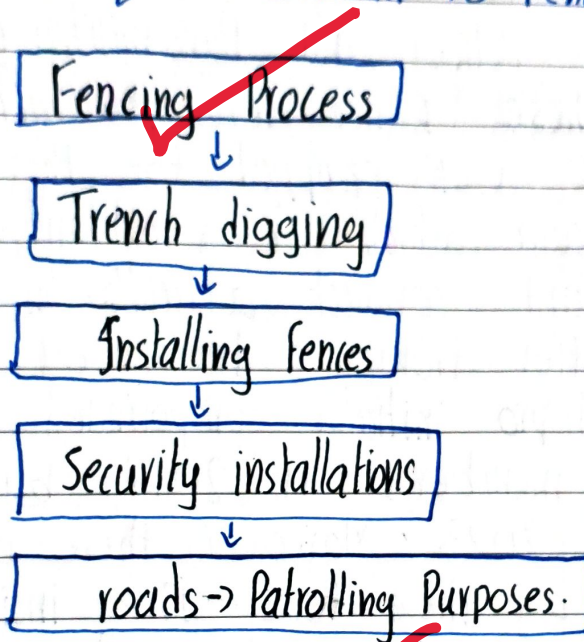 Fencing Process
↓
Trench digging
↓
Installing fences
↓
Security installations
↓
roads → Patrolling Purposes.